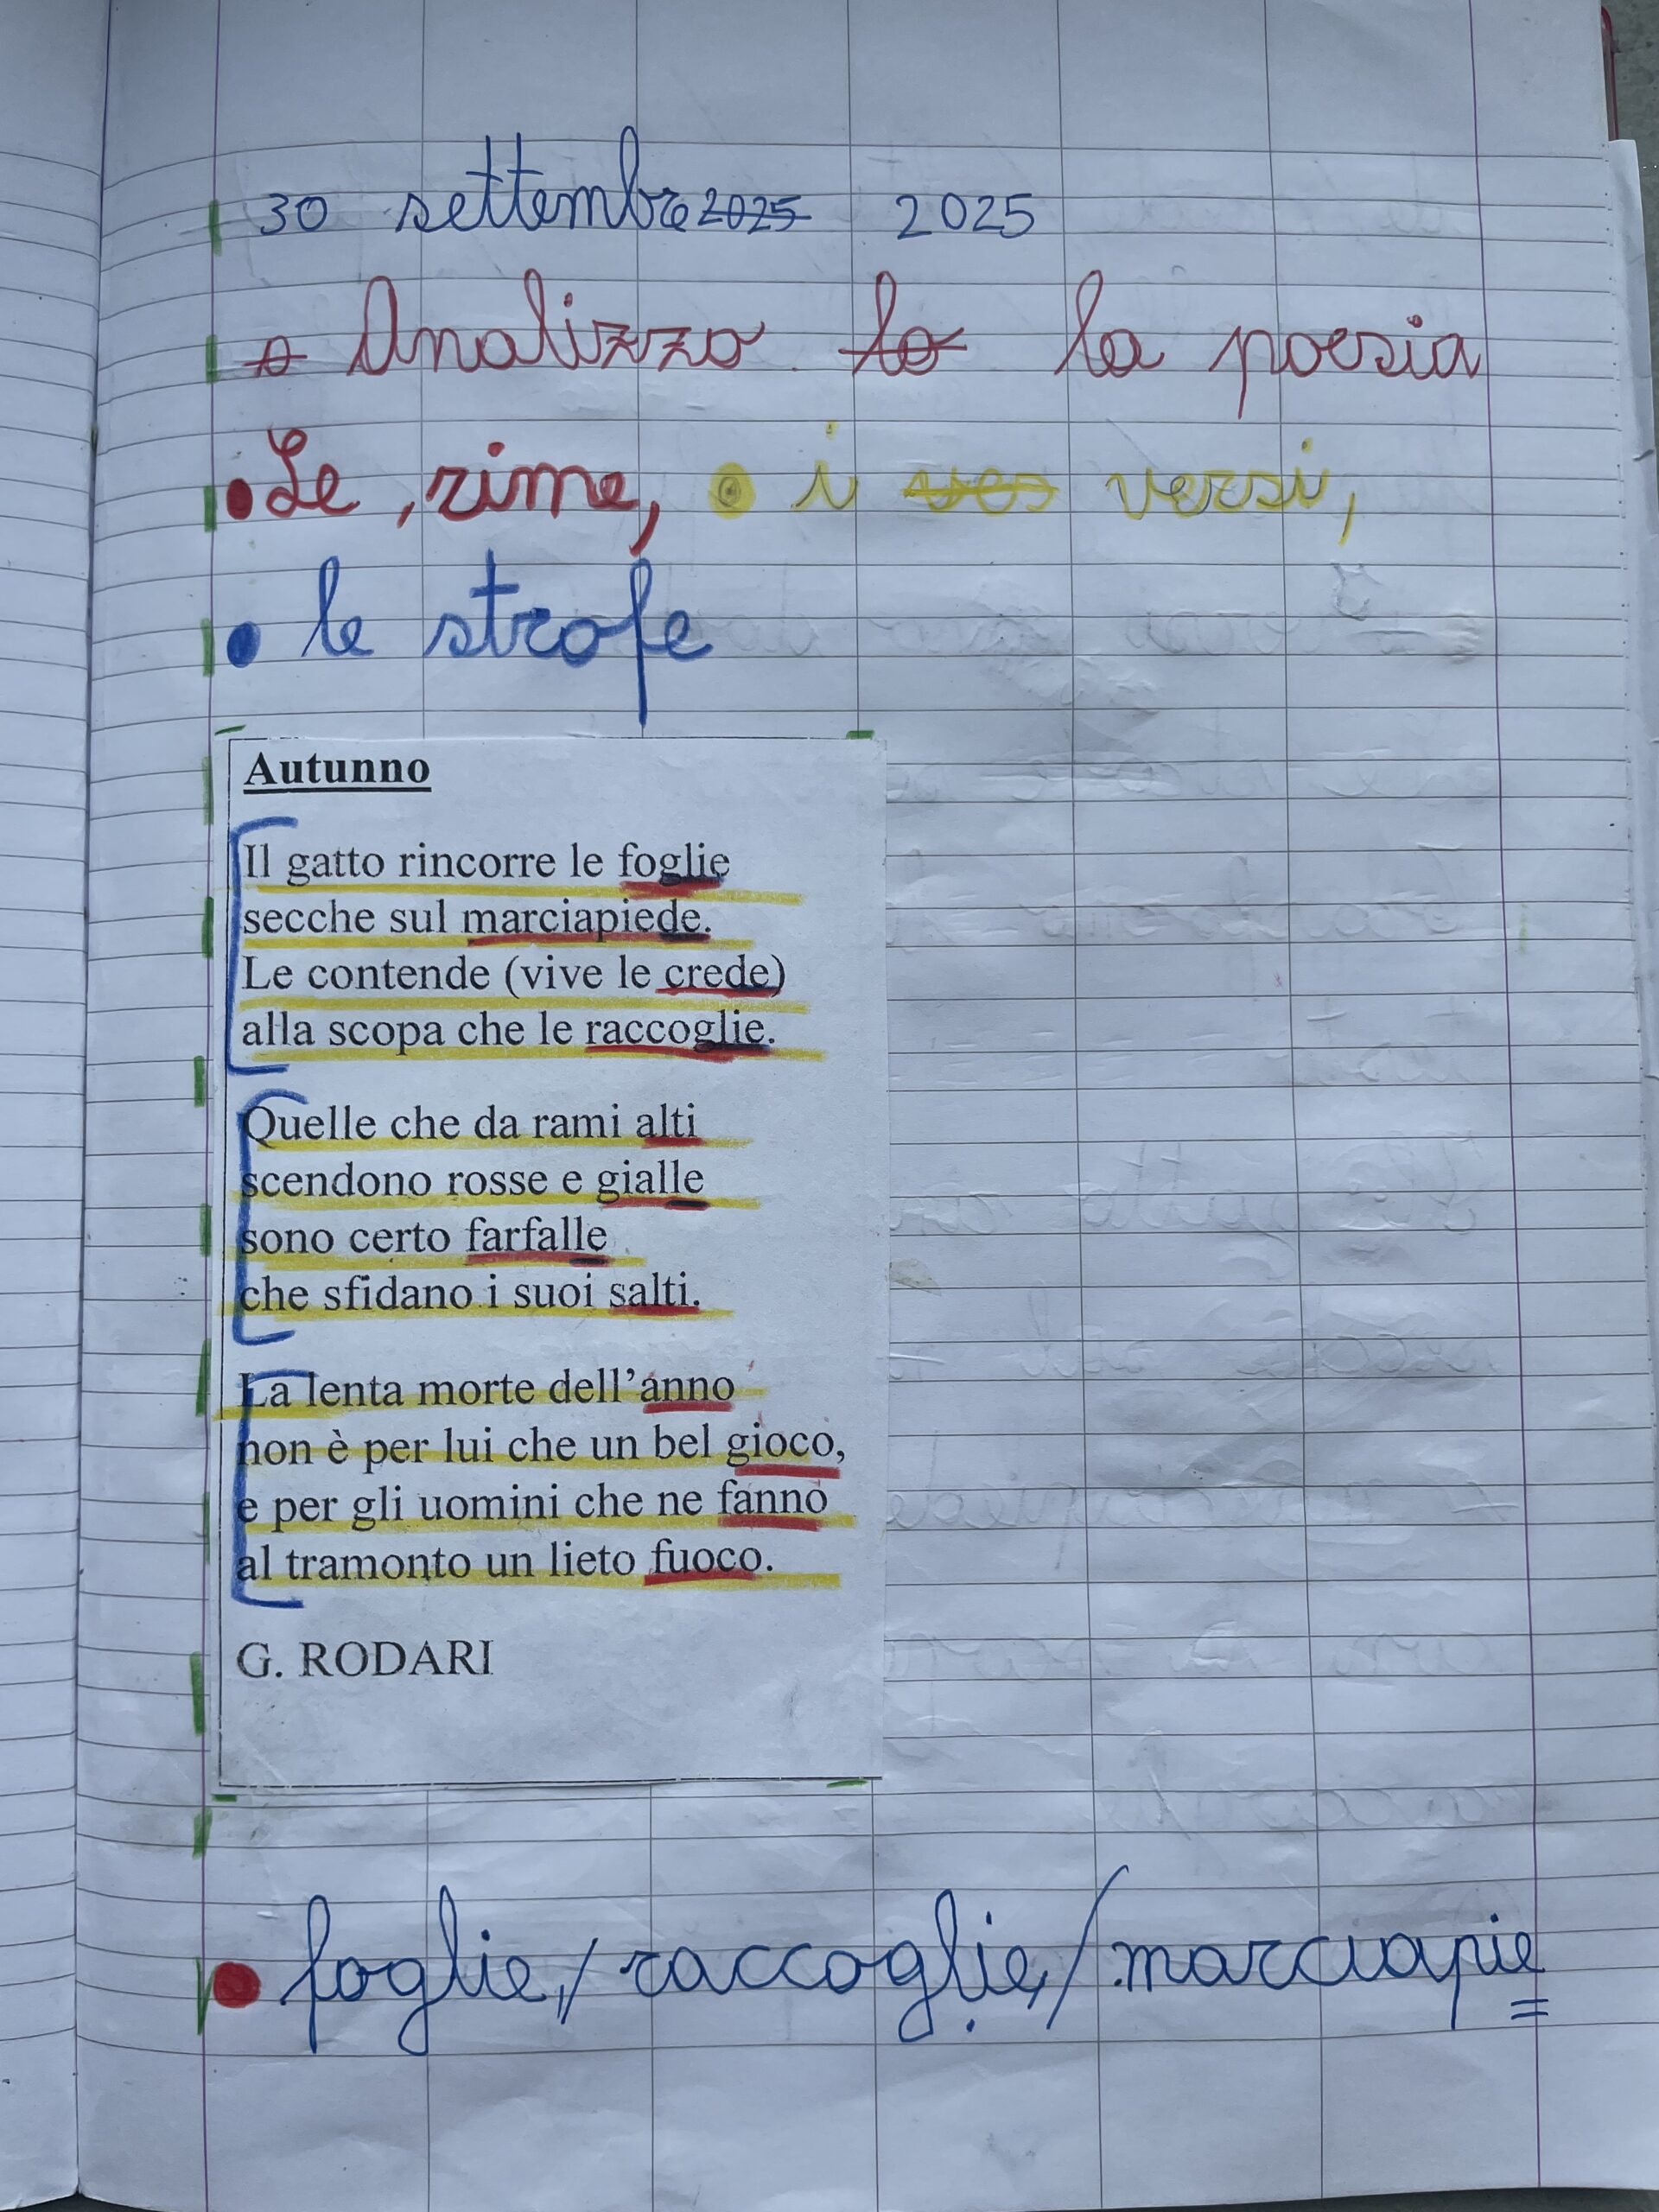 30 settembre 2025 2025
Analizzo la la poesia
Le rime, i ves versi,
le strofe
Autunno
Il gatto rincorre le foglie
secche sul marciapiede.
Le contende (vive le crede)
alla scopa che le raccoglie.
Quelle che da rami alti
scendono rosse e gialle
sono certo farfalle
che sfidano i suoi salti.
La lenta morte dell'anno
non è per lui che un bel gioco,
e per gli uomini che ne fanno
al tramonto un lieto fuoco.
G. RODARI
foglie/raccoglie/marciapie=